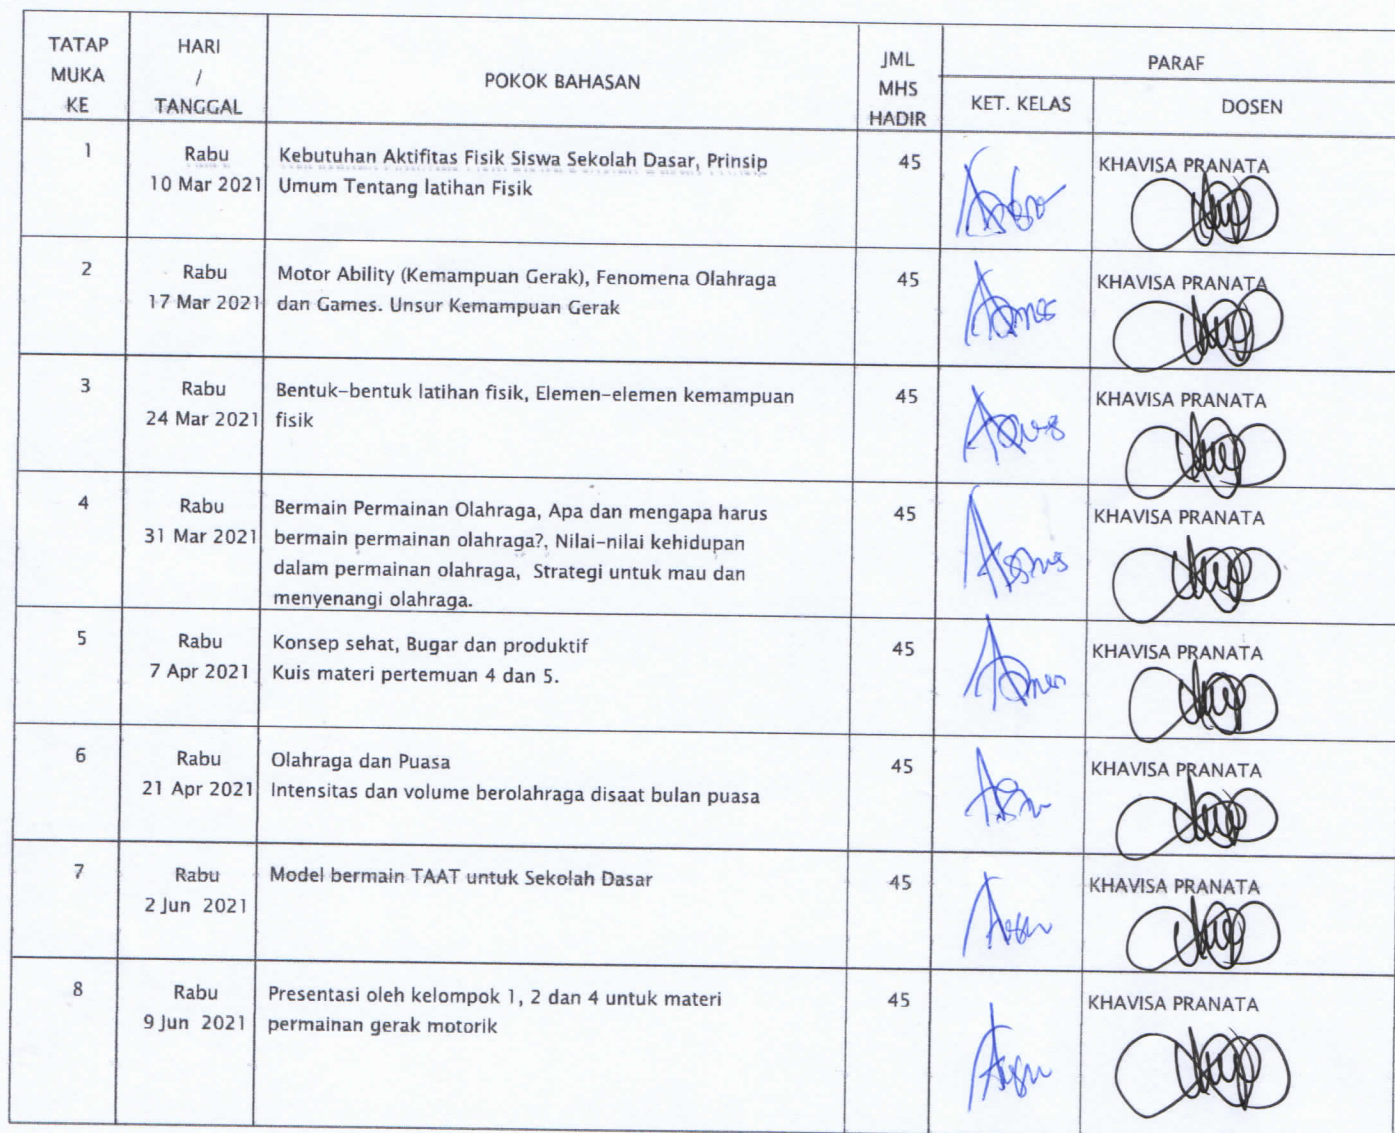 TATAP
MUKA
KE
HARI
/
TANGGAL
POKOK BAHASAN
JML
MHS
HADIR
PARAF
KET. KELAS
DOSEN
1
Rabu
10 Mar 2021
Kebutuhan Aktifitas Fisik Siswa Sekolah Dasar, Prinsip
Umum Tentang latihan Fisik
45
KHAVISA PRANATA
2
Rabu
17 Mar 2021
Motor Ability (Kemampuan Gerak), Fenomena Olahraga
dan Games. Unsur Kemampuan Gerak
45
KHAVISA PRANATA
3
Rabu
24 Mar 2021
Bentuk-bentuk latihan fisik, Elemen-elemen kemampuan
fisik
45
KHAVISA PRANATA
4
Rabu
31 Mar 2021
Bermain Permainan Olahraga, Apa dan mengapa harus
bermain permainan olahraga?, Nilai-nilai kehidupan
dalam permainan olahraga, Strategi untuk mau dan
menyenangi olahraga.
45
KHAVISA PRANATA
5
Rabu
7 Apr 2021
Konsep sehat, Bugar dan produktif
Kuis materi pertemuan 4 dan 5.
45
KHAVISA PRANATA
6
Rabu
21 Apr 2021
Olahraga dan Puasa
Intensitas dan volume berolahraga disaat bulan puasa
45
KHAVISA PRANATA
7
Rabu
2 Jun 2021
Model bermain TAAT untuk Sekolah Dasar
45
KHAVISA PRANATA
8
Rabu
9 Jun 2021
Presentasi oleh kelompok 1, 2 dan 4 untuk materi
permainan gerak motorik
45
KHAVISA PRANATA